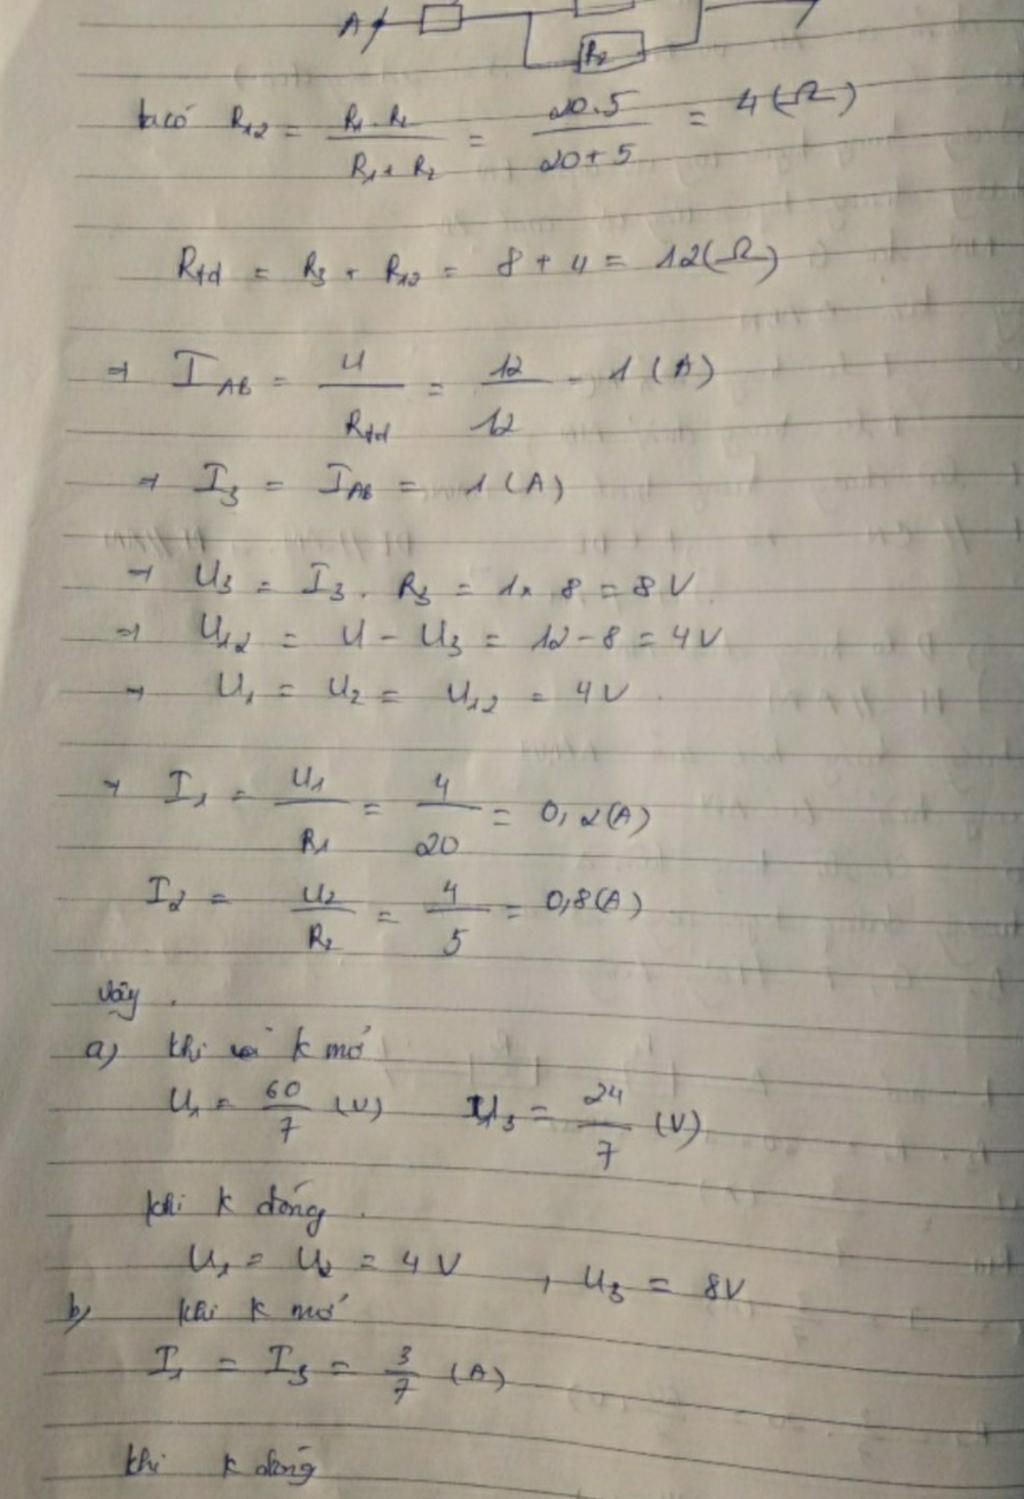 A
R₂
ta có R₁₂ = R₁.R₂ / R₁+R₂ = 20.5 / 20+5 = 4(Ω)
Rtđ = R₃ + R₁₂ = 8 + 4 = 12(Ω)
⇒ I_AB = U / Rtđ = 12 / 12 = 1 (A)
⇒ I₃ = I_AB = 1 (A)
⇒ U₃ = I₃ . R₃ = 1 x 8 = 8 V
⇒ U₁₂ = U - U₃ = 12 - 8 = 4V
⇒ U₁ = U₂ = U₁₂ = 4V
⇒ I₁ = U₁ / R₁ = 4 / 20 = 0,2(A)
I₂ = U₂ / R₂ = 4 / 5 = 0,8(A)
Vậy
a) khi k mở
U₁ = 60/7 (V) U₃ = 24/7 (V)
khi k đóng
U₁ = U₂ = 4V , U₃ = 8V
b) khi k mở
I₁ = I₃ = 3/7 (A)
khi k đóng